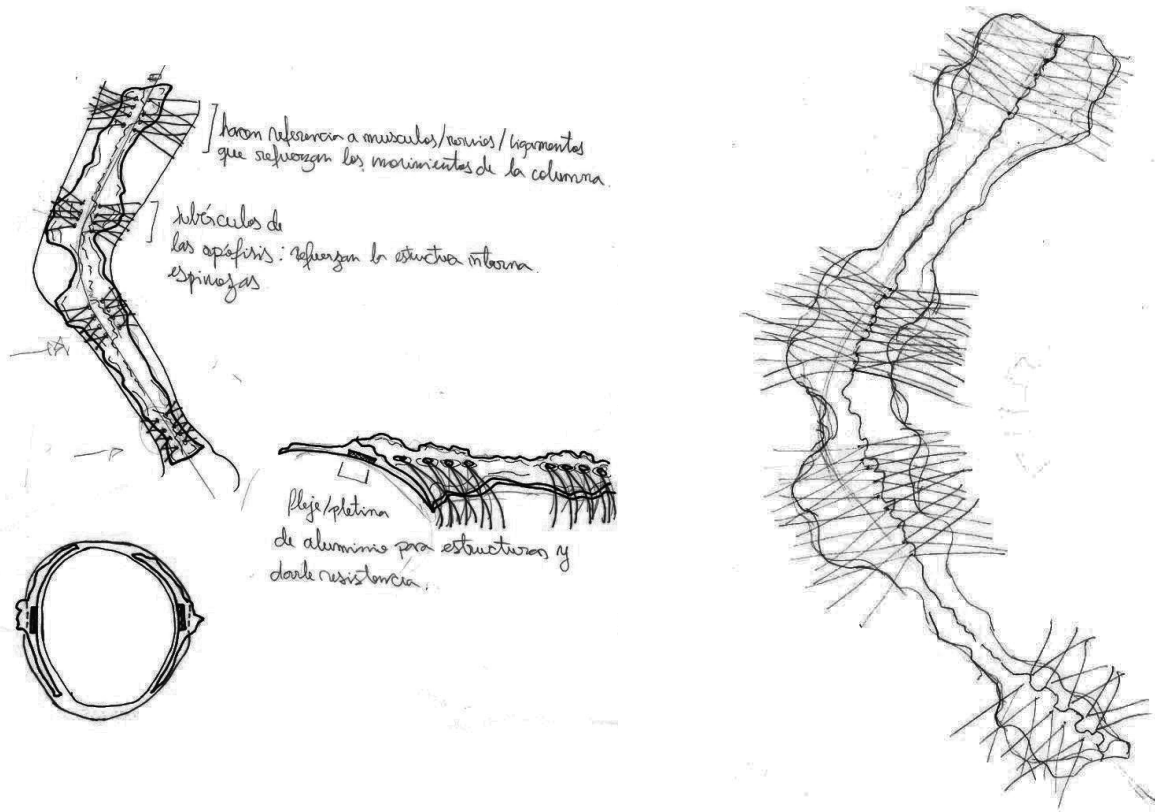 hacen referencia a musculos/nervios/ligamentos
que refuerzan los movimientos de la columna.
tubérculos de
las apófisis: refuerzan la estructura interna.
espinozas
fleje/pletina
de aluminio para estructuras y
darle resistencia.